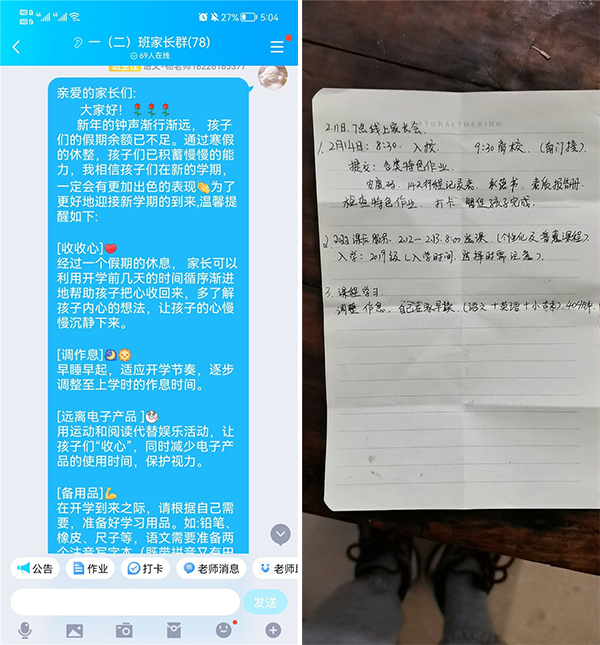 27%
5:04
一（二）班家长群(78)
69人在线
亲爱的家长们:
大家好！
新年的钟声渐行渐远， 孩子
们的假期余额已不足。通过寒假
的休整，孩子们已积蓄慢慢的能
力，我相信孩子们在新的学期，
一定会有更加出色的表现👏为了
更好地迎接新学期的到来,温馨提
醒如下:
[收收心]
经过一个假期的休息， 家长可以
利用开学前几天的时间循序渐进
地帮助孩子把心收回来，多了解
孩子内心的想法，让孩子的心慢
慢沉静下来。
[调作息]
早睡早起，适应开学节奏，逐步
调整至上学时的作息时间。
[远离电子产品 ]
用运动和阅读代替娱乐活动，让
孩子们“收心”，同时减少电子产
品的使用时间，保护视力。
[备用品]
在开学到来之际，请根据自己需
要，准备好学习用品。如:铅笔、
橡皮、尺子等，语文需要准备两
公告
作业
打卡
老师消息
发送
NATURALTHERING
2.11日. 7点线上家长会.
1. 2月14日: 8:30. 入校. 9:30离校. (南门接).
提交: 各类特色作业.
14天行程记录表. 承诺书. 素质报告册.
检查特色作业. 打卡. 督促孩子完成.
2. 2022课后服务. 2.12-2.13. 8:00选课. (个性化及普惠课程).
入学: 2019级 (入学时间. 选择时需注意).
3. 课程学习.
调整作息. (语文+英语+